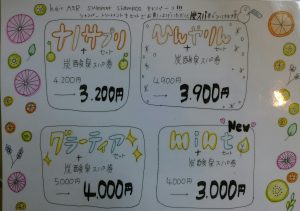 hair MAR summer shampoo キャンペーン!!!
ナノサプリ
+ セット
炭酸泉スパ券
4.200円
→ 3.200円
ひんやりん
+ セット
炭酸泉スパ券
4.900円
→ 3.900円
グラーティア
+ セット
炭酸泉スパ券
5000円
→ 4.000円
New
mint
+ セット
炭酸泉スパ券
4000円
→ 3.000円